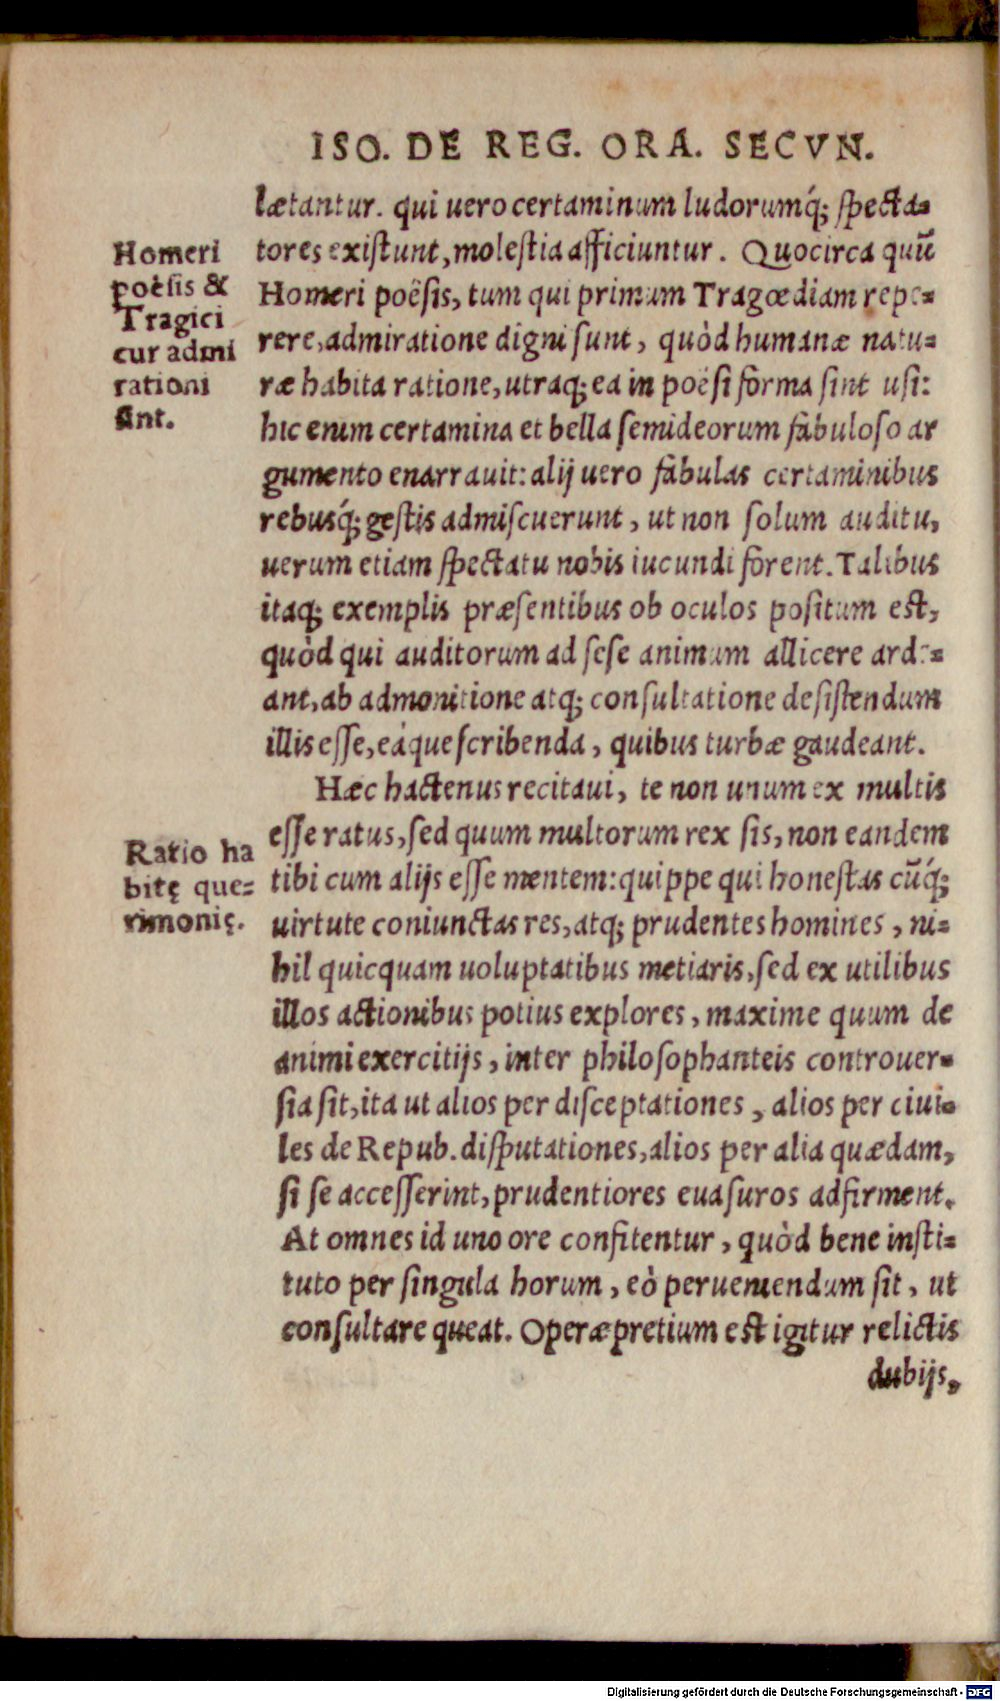 ISO. DE REG. ORA. SECVN.
lætantur. qui uero certaminum ludorumq́; specta=
tores existunt, molestia afficiuntur. Quocirca quũ
Homeri poësis, tum qui primum Tragœdiam repe=
rere, admiratione digni sunt, quòd humanæ natu=
ræ habita ratione, utraq; ea in poësi forma sint usi:
hic enim certamina et bella semideorum fabuloso ar
gumento enarrauit: alij uero fabulas certaminibus
rebusq́; gestis admiscuerunt, ut non solum auditu,
uerum etiam spectatu nobis iucundi forent. Talibus
itaq; exemplis præsentibus ob oculos positum est,
quòd qui auditorum ad sese animum allicere arde=
ant, ab admonitione atq; consultatione desistendum
illis esse, eáque scribenda, quibus turbæ gaudeant.
Homeri
poësis &
Tragici
cur admi
rationi
sint.
Hæc hactenus recitaui, te non unum ex multis
esse ratus, sed quum multorum rex sis, non eandem
tibi cum alijs esse mentem: quippe qui honestas cũq́;
uirtute coniunctas res, atq; prudentes homines, ni=
hil quicquam uoluptatibus metiaris, sed ex utilibus
illos actionibus potius explores, maxime quum de
animi exercitijs, inter philosophanteis controuer=
sia sit, ita ut alios per disceptationes, alios per ciui=
les de Repub. disputationes, alios per alia quædam,
si se accesserint, prudentiores euasuros adfirment.
At omnes id uno ore confitentur, quòd bene insti=
tuto per singula horum, eò perueniendum sit, ut
consultare queat. Operæpretium est igitur relictis
dubijs,
Ratio ha
bitę que=
rimonię.
Digitalisierung gefördert durch die Deutsche Forschungsgemeinschaft - DFG